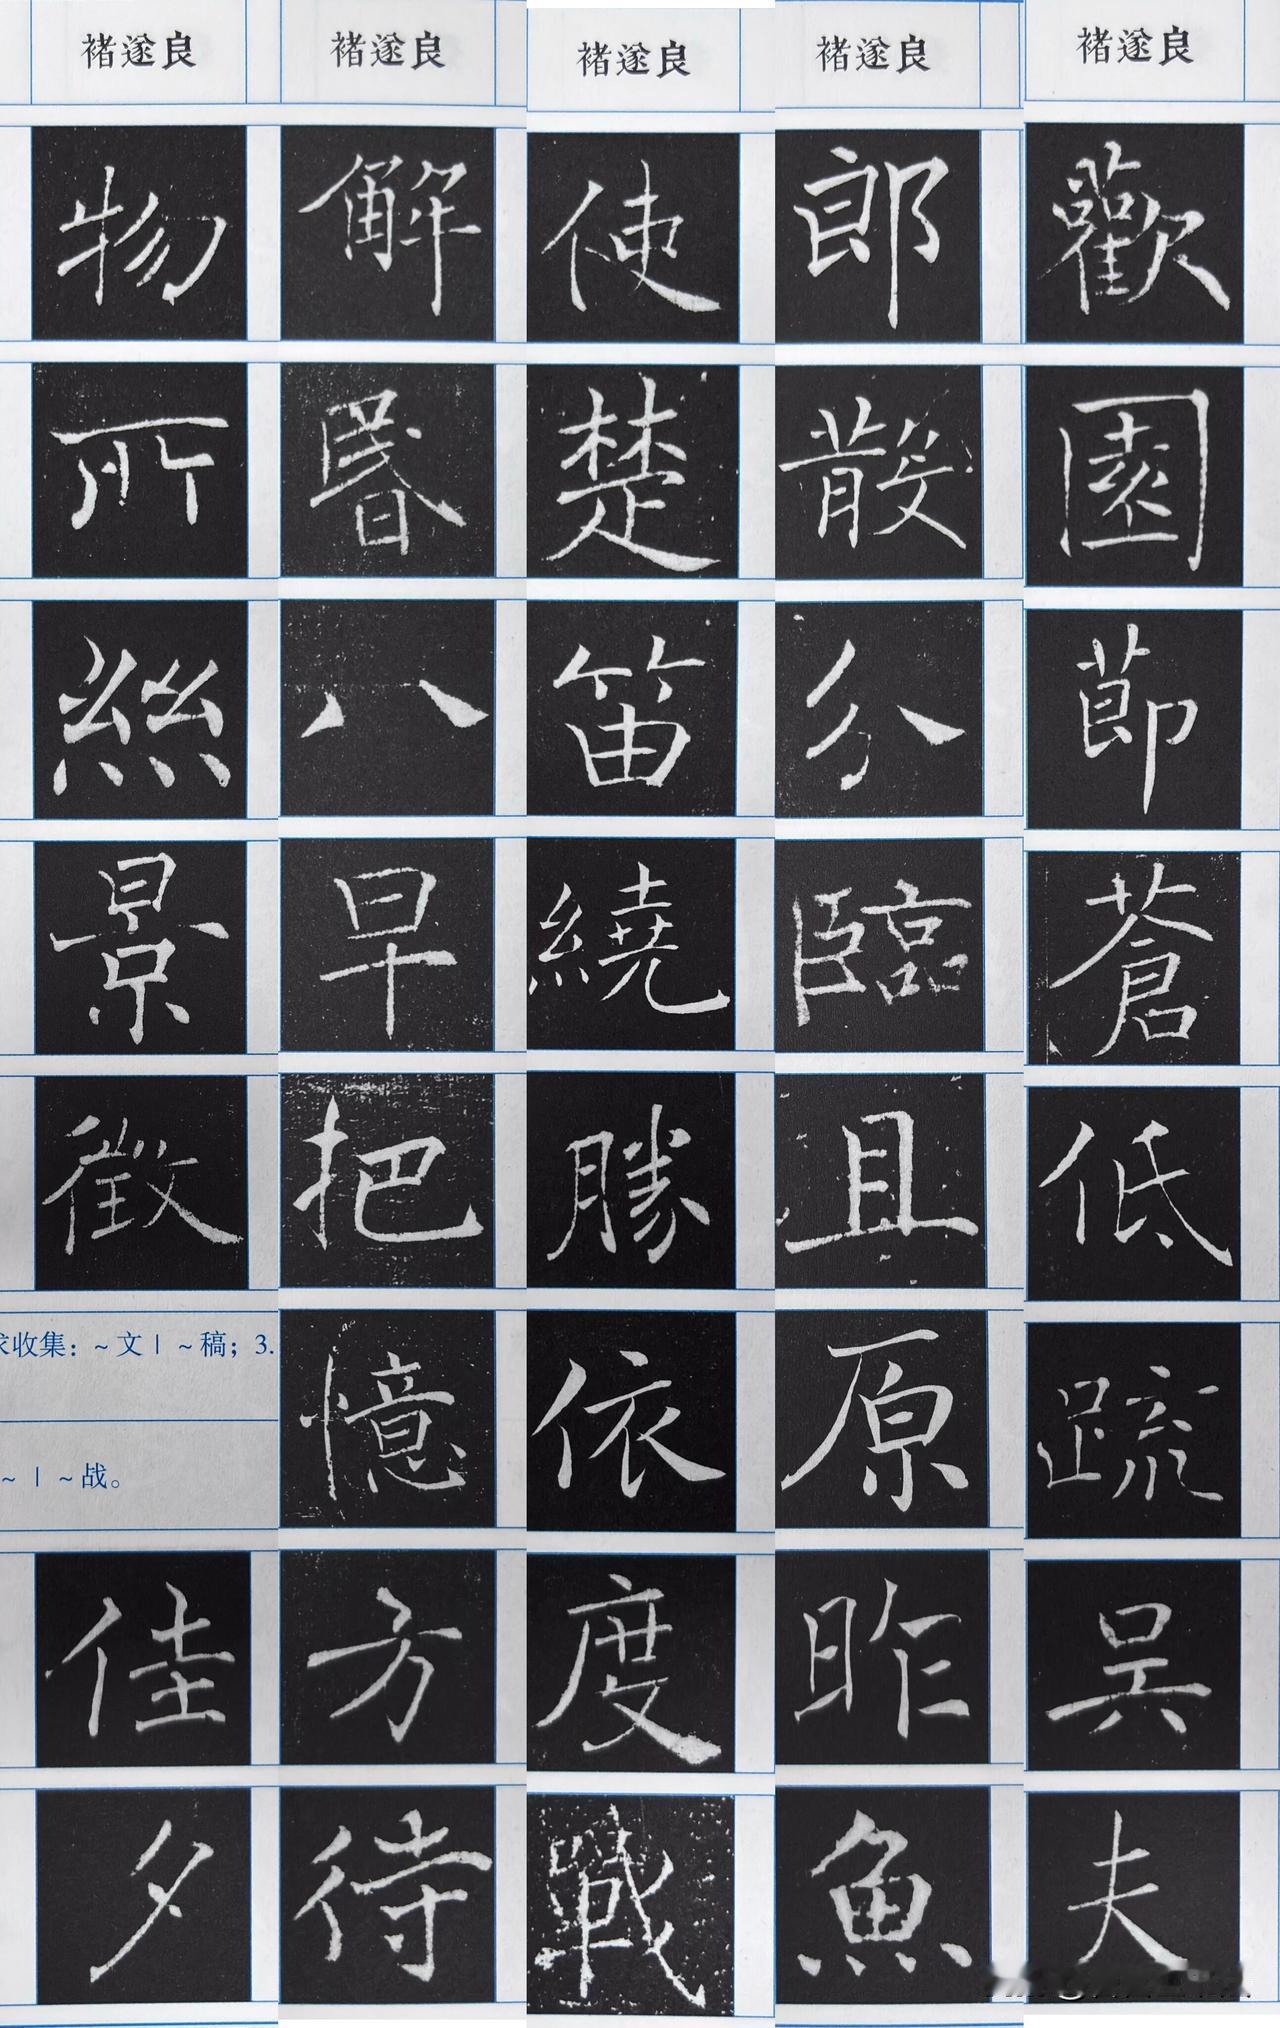 褚遂良 褚遂良 褚遂良 褚遂良 褚遂良
物 解 使 郎 歡
所 昬 楚 散 園
絲 八 笛 分 節
景 早 繞 臨 蒼
徵 把 勝 且 低
求收集：~文|~稿；3.
~|~战。
憶 依 原 疏
佳 方 度 昨 吳
夕 待 戰 魚 夫